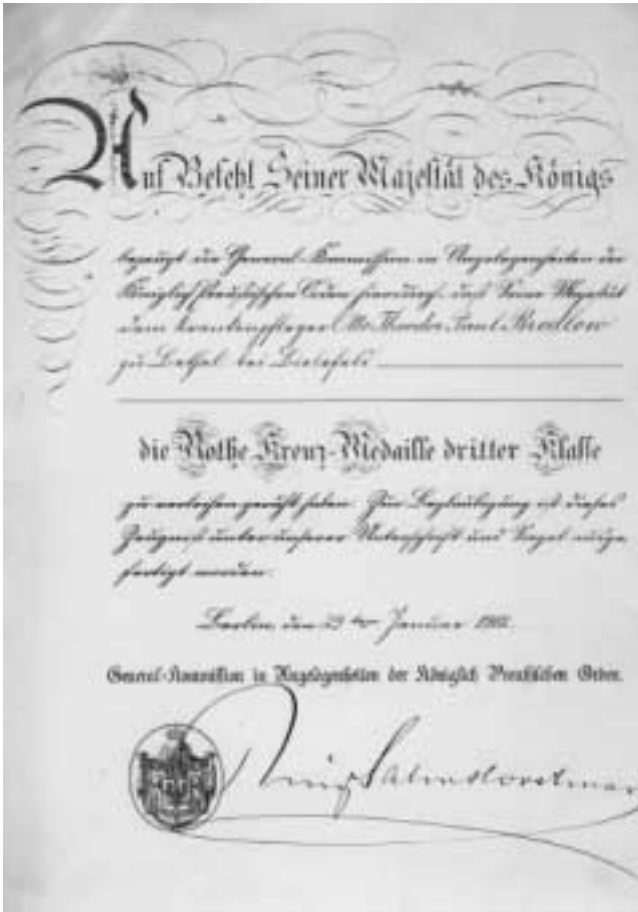 Auf Befehl Seiner Majestät des Königs
bezeugt die General-Kommission in Angelegenheiten der
Königlich Preußischen Orden hierdurch, daß Seine Majestät
dem Krankenpfleger Otto Theodor Paul Bredlow
zu Bethel bei Bielefeld
die Rothe Kreuz-Medaille dritter Klasse
zu verleihen geruht haben. Zur Beglaubigung ist dieses
Zeugniß unter unserer Unterschrift und Siegel ausge-
fertigt worden.
Berlin, den 23ten Januar
General-Kommission in Angelegenheiten der Königlich Preußischen Orden.